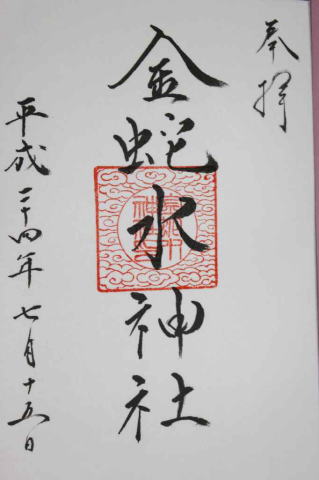 奉拝
金蛇水神社
平成二十四年七月十五日